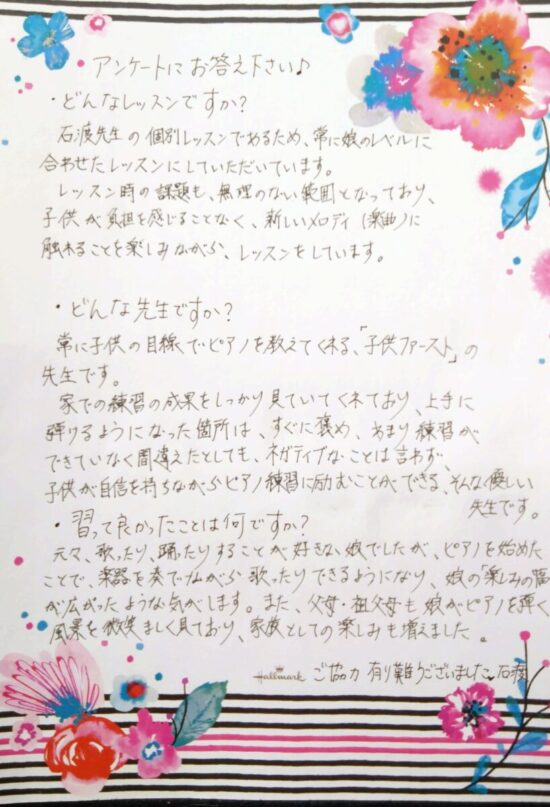 アンケートにお答え下さい♪
・どんなレッスンですか?
石渡先生の個別レッスンであるため、常に娘のレベルに
合わせたレッスンにしていただいています。
レッスン時の課題も、無理のない範囲となっており、
子供が負担を感じることなく、新しいメロディ(楽曲)に
触れることを楽しみながら、レッスンをしています。
・どんな先生ですか?
常に子供の目線でピアノを教えてくれる、「子供ファースト」の
先生です。
家での練習の成果をしっかり見ていてくれており、上手に
弾けるようになった箇所は、すぐに褒め、あまり練習が
できていなく間違えたとしても、ネガティブなことは言わず、
子供が自信を持ちながらピアノ練習に励むことができる、そんな優しい
先生です。
・習って良かったことは何ですか?
元々、歌ったり、踊ったりすることが好きな娘でしたが、ピアノを始めた
ことで、楽器を奏でながら歌ったりできるようになり、娘の「楽しみの幅
が広がったような気がします。また、父母・祖父母も娘がピアノを弾く
風景を微笑ましく見ており、家族としての楽しみも増えました。
Hallmark ご協力有り難うございました♥石渡